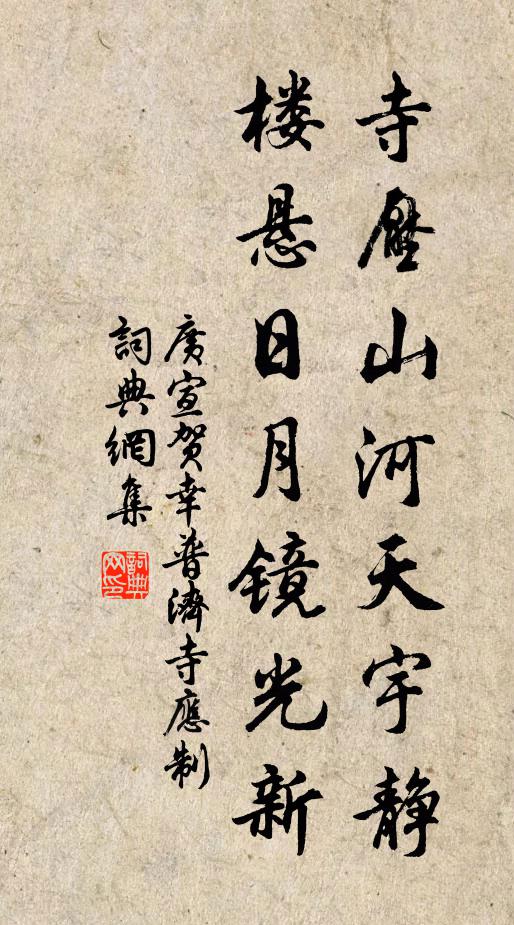 寺压山河天宇静
楼悬日月镜光新
廣宣賀幸普濟寺應制
詞典網集
詞典网印